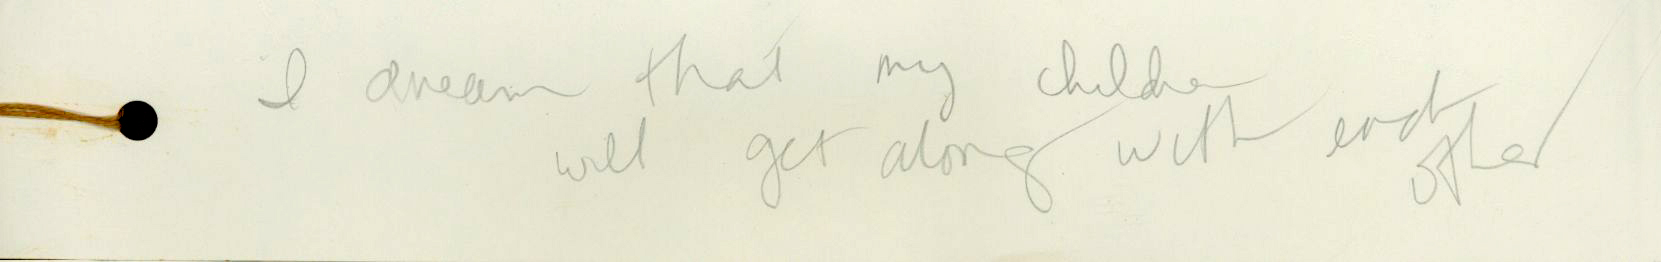 I dream that my children
will get along with each
other